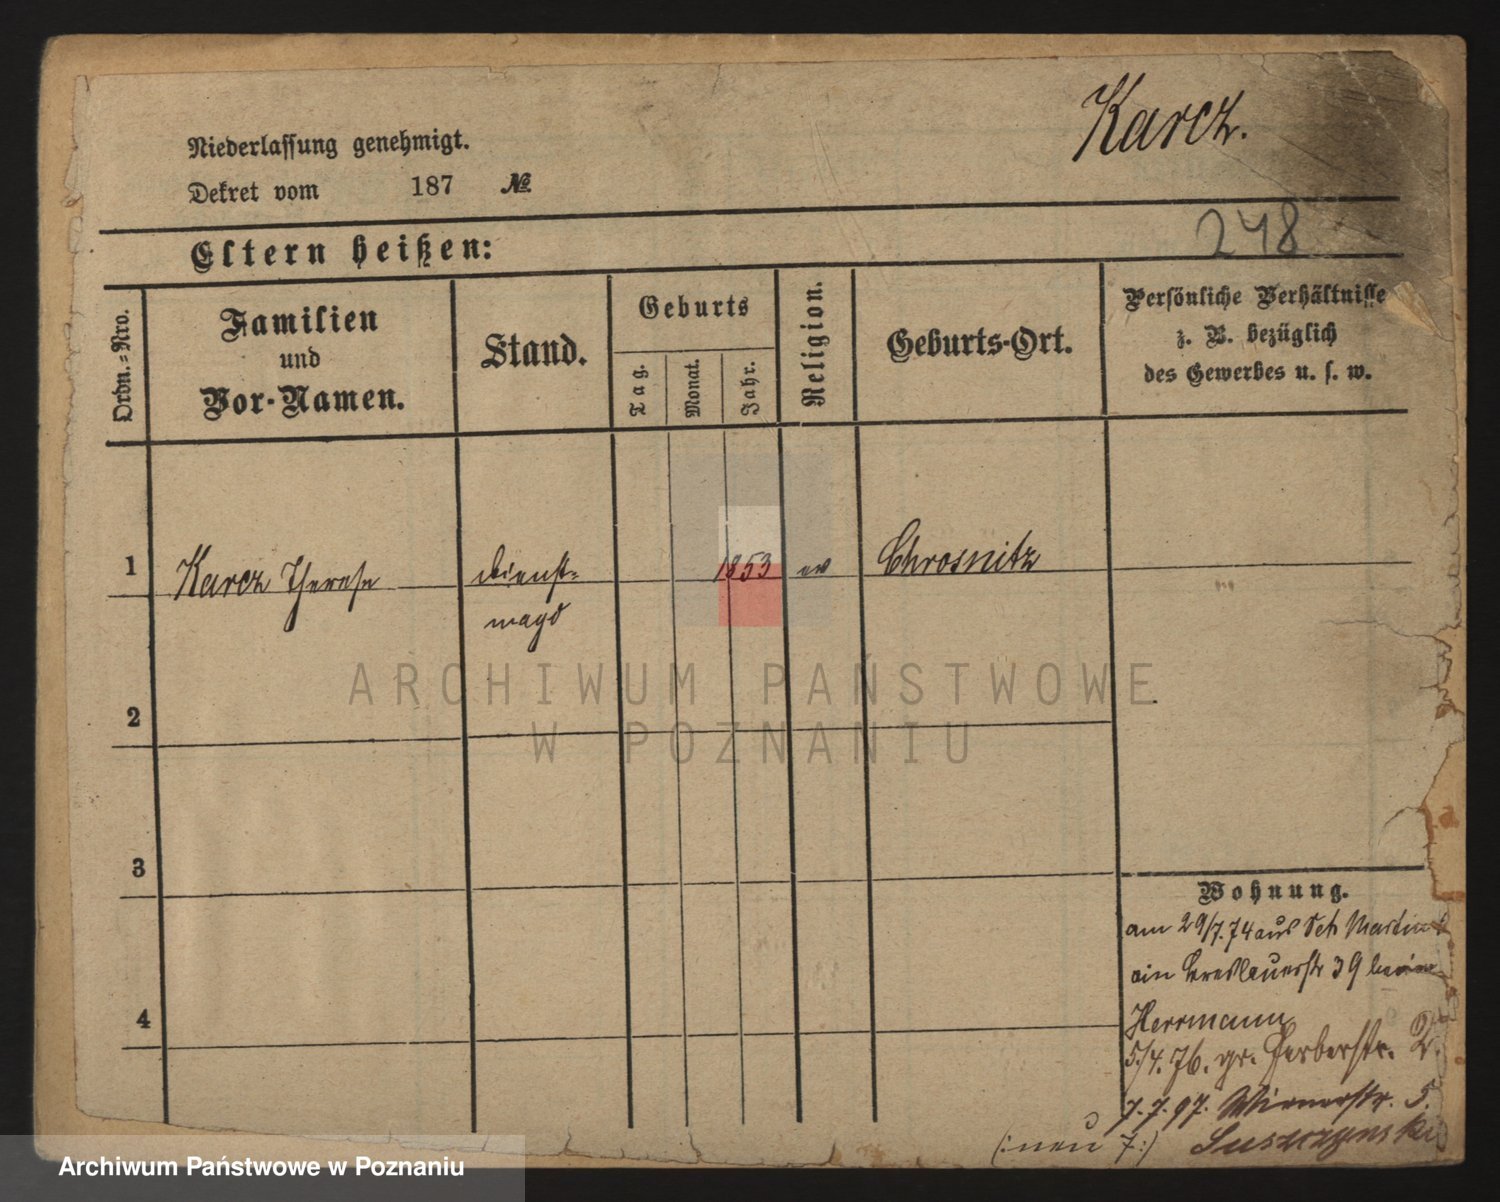 Karcz.
Niederlassung genehmigt.
Dekret vom 187 №
248
Eltern heißen:
Ordn.=Nro.
Familien
und
Vor-Namen.
Stand.
Geburts
Tag.
Monat.
Jahr.
Religion.
Geburts-Ort.
Persönliche Verhältnisse
z. B. bezüglich
des Gewerbes u. s. w.
1
Karcz Therese
Dienst=
magd
1853
ev
Chrosnitz
ARCHIWUM PAŃSTWOWE
W POZNANIU
2
3
4
Wohnung.
am 29/7.74 aus Sct Martin
ein Breslauerstr 39 beim
Herrmann
5/4.76. gr. Gerberstr. 2.
7.7.97. Wienerstr. 5.
(:neu 7:)
Suszczynski
Archiwum Państwowe w Poznaniu